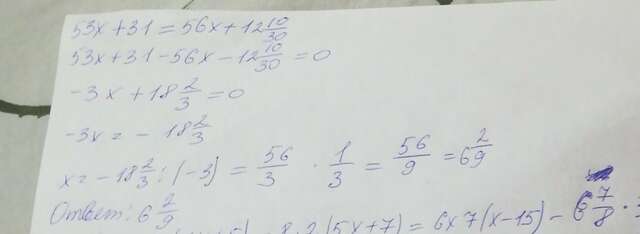 53x+31=56x+12 10/30
53x+31-56x-12 10/30=0
-3x+18 2/3=0
-3x=-18 2/3
x=-18 2/3:(-3)=56/3·1/3=56/9=6 2/9
Ответ: 6 2/9
8·2(5x+7)=6x7(x-15)-6 7/8·